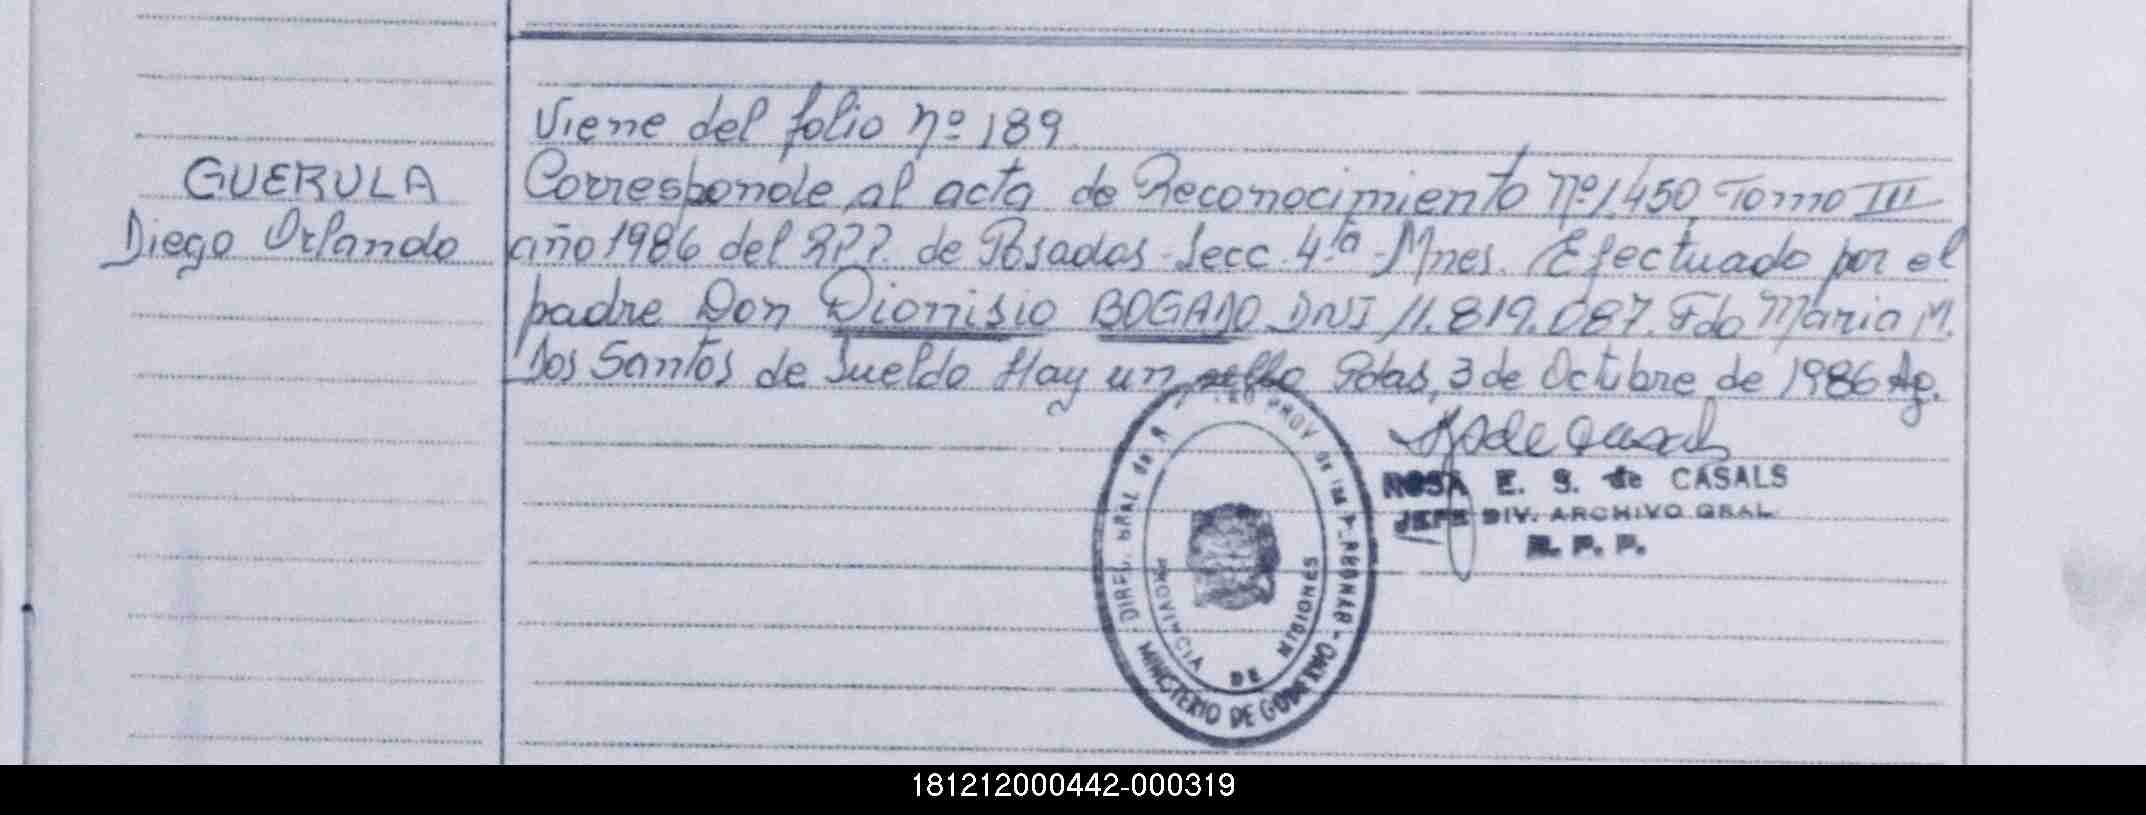 Viene del folio nº 189
GUERULA
Diego Orlando
Corresponde al acta de Reconocimiento nº 1.450 Tomo III
año 1986 del RPP. de Posadas-Secc. 4ta-Mnes. Efectuado por el
padre Don Dionisio BOGADO DNI 11.819.087. Fdo Maria M.
Dos Santos de Sueldo Hay un sello Pdas, 3 de Octubre de 1986 Ag.
ROSA E. S. de CASALS
JEFE DIV. ARCHIVO GRAL
R. P. P.
PROVINCIA DE MISIONES
MINISTERIO DE GOBIERNO
181212000442-000319